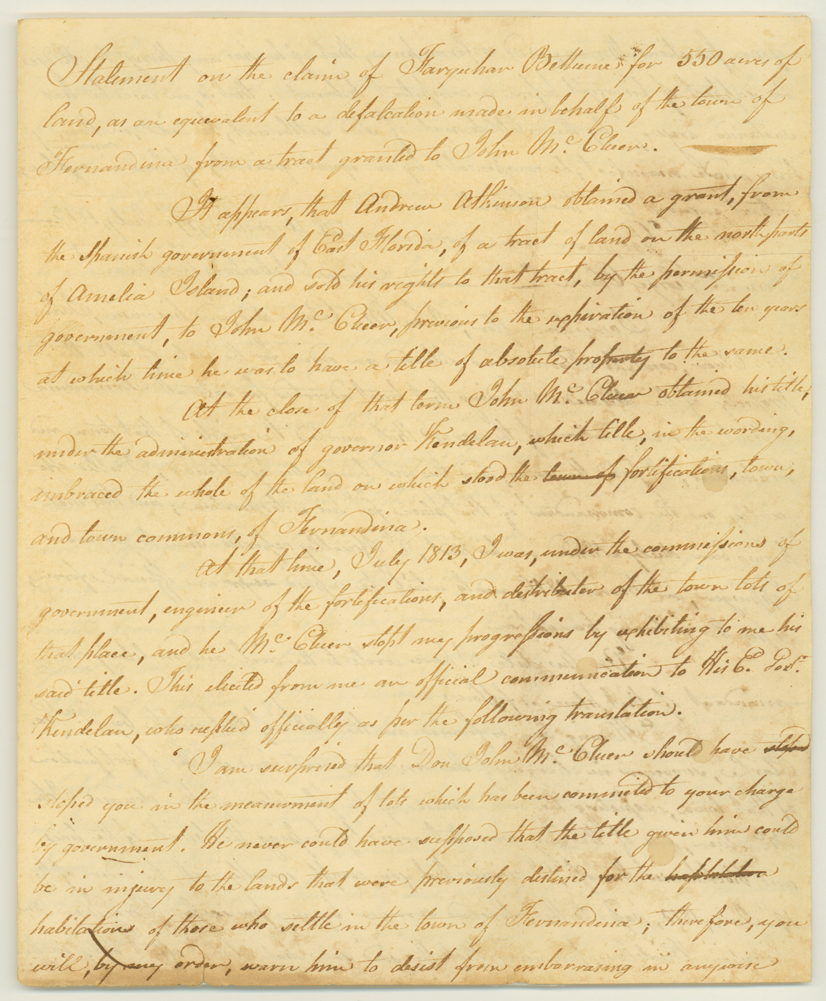 Statement on the claim of Farquhar Bethune for 550 acres of
land, as an equivalent to a defalcation made in behalf of the town of
Fernandina from a tract granted to John Mc. Cluer.
It appears, that Andrew Atkinson obtained a grant, from
the Spanish government of East Florida, of a tract of land on the north parts
of Amelia Island; and sold his rights to that tract, by the permission of
government, to John Mc. Cluer, previous to the expiration of the ten years
at which time he was to have a title of absolute property to the same.
At the close of that term John Mc. Cluer obtained his title,
under the administration of governor Kendelan, which title, in the wording,
imbraced the whole of the land on which stood the town of fortifications, town,
and town commons, of Fernandina.
At that time, July 1813, I was, under the commissions of
government, engineer of the fortifications, and distributer of the town lots of
that place, and he Mc. Cluer stopt my progressions by exhibiting to me his
said title. This elicited from me an official communication to His E. Gov.
Kendelan, who replied officially as per the following translation.
"I am surprised that Don John Mc. Cluer should have stoped
stoped you in the measurment of lots which has been committed to your charge
by government. He never could have supposed that the title given him could
be in injury to the lands that were previously destined for the
habitations of those who settle in the town of Fernandina; therefore, you
will, by my order, warn him to desist from embarrasing in anywise